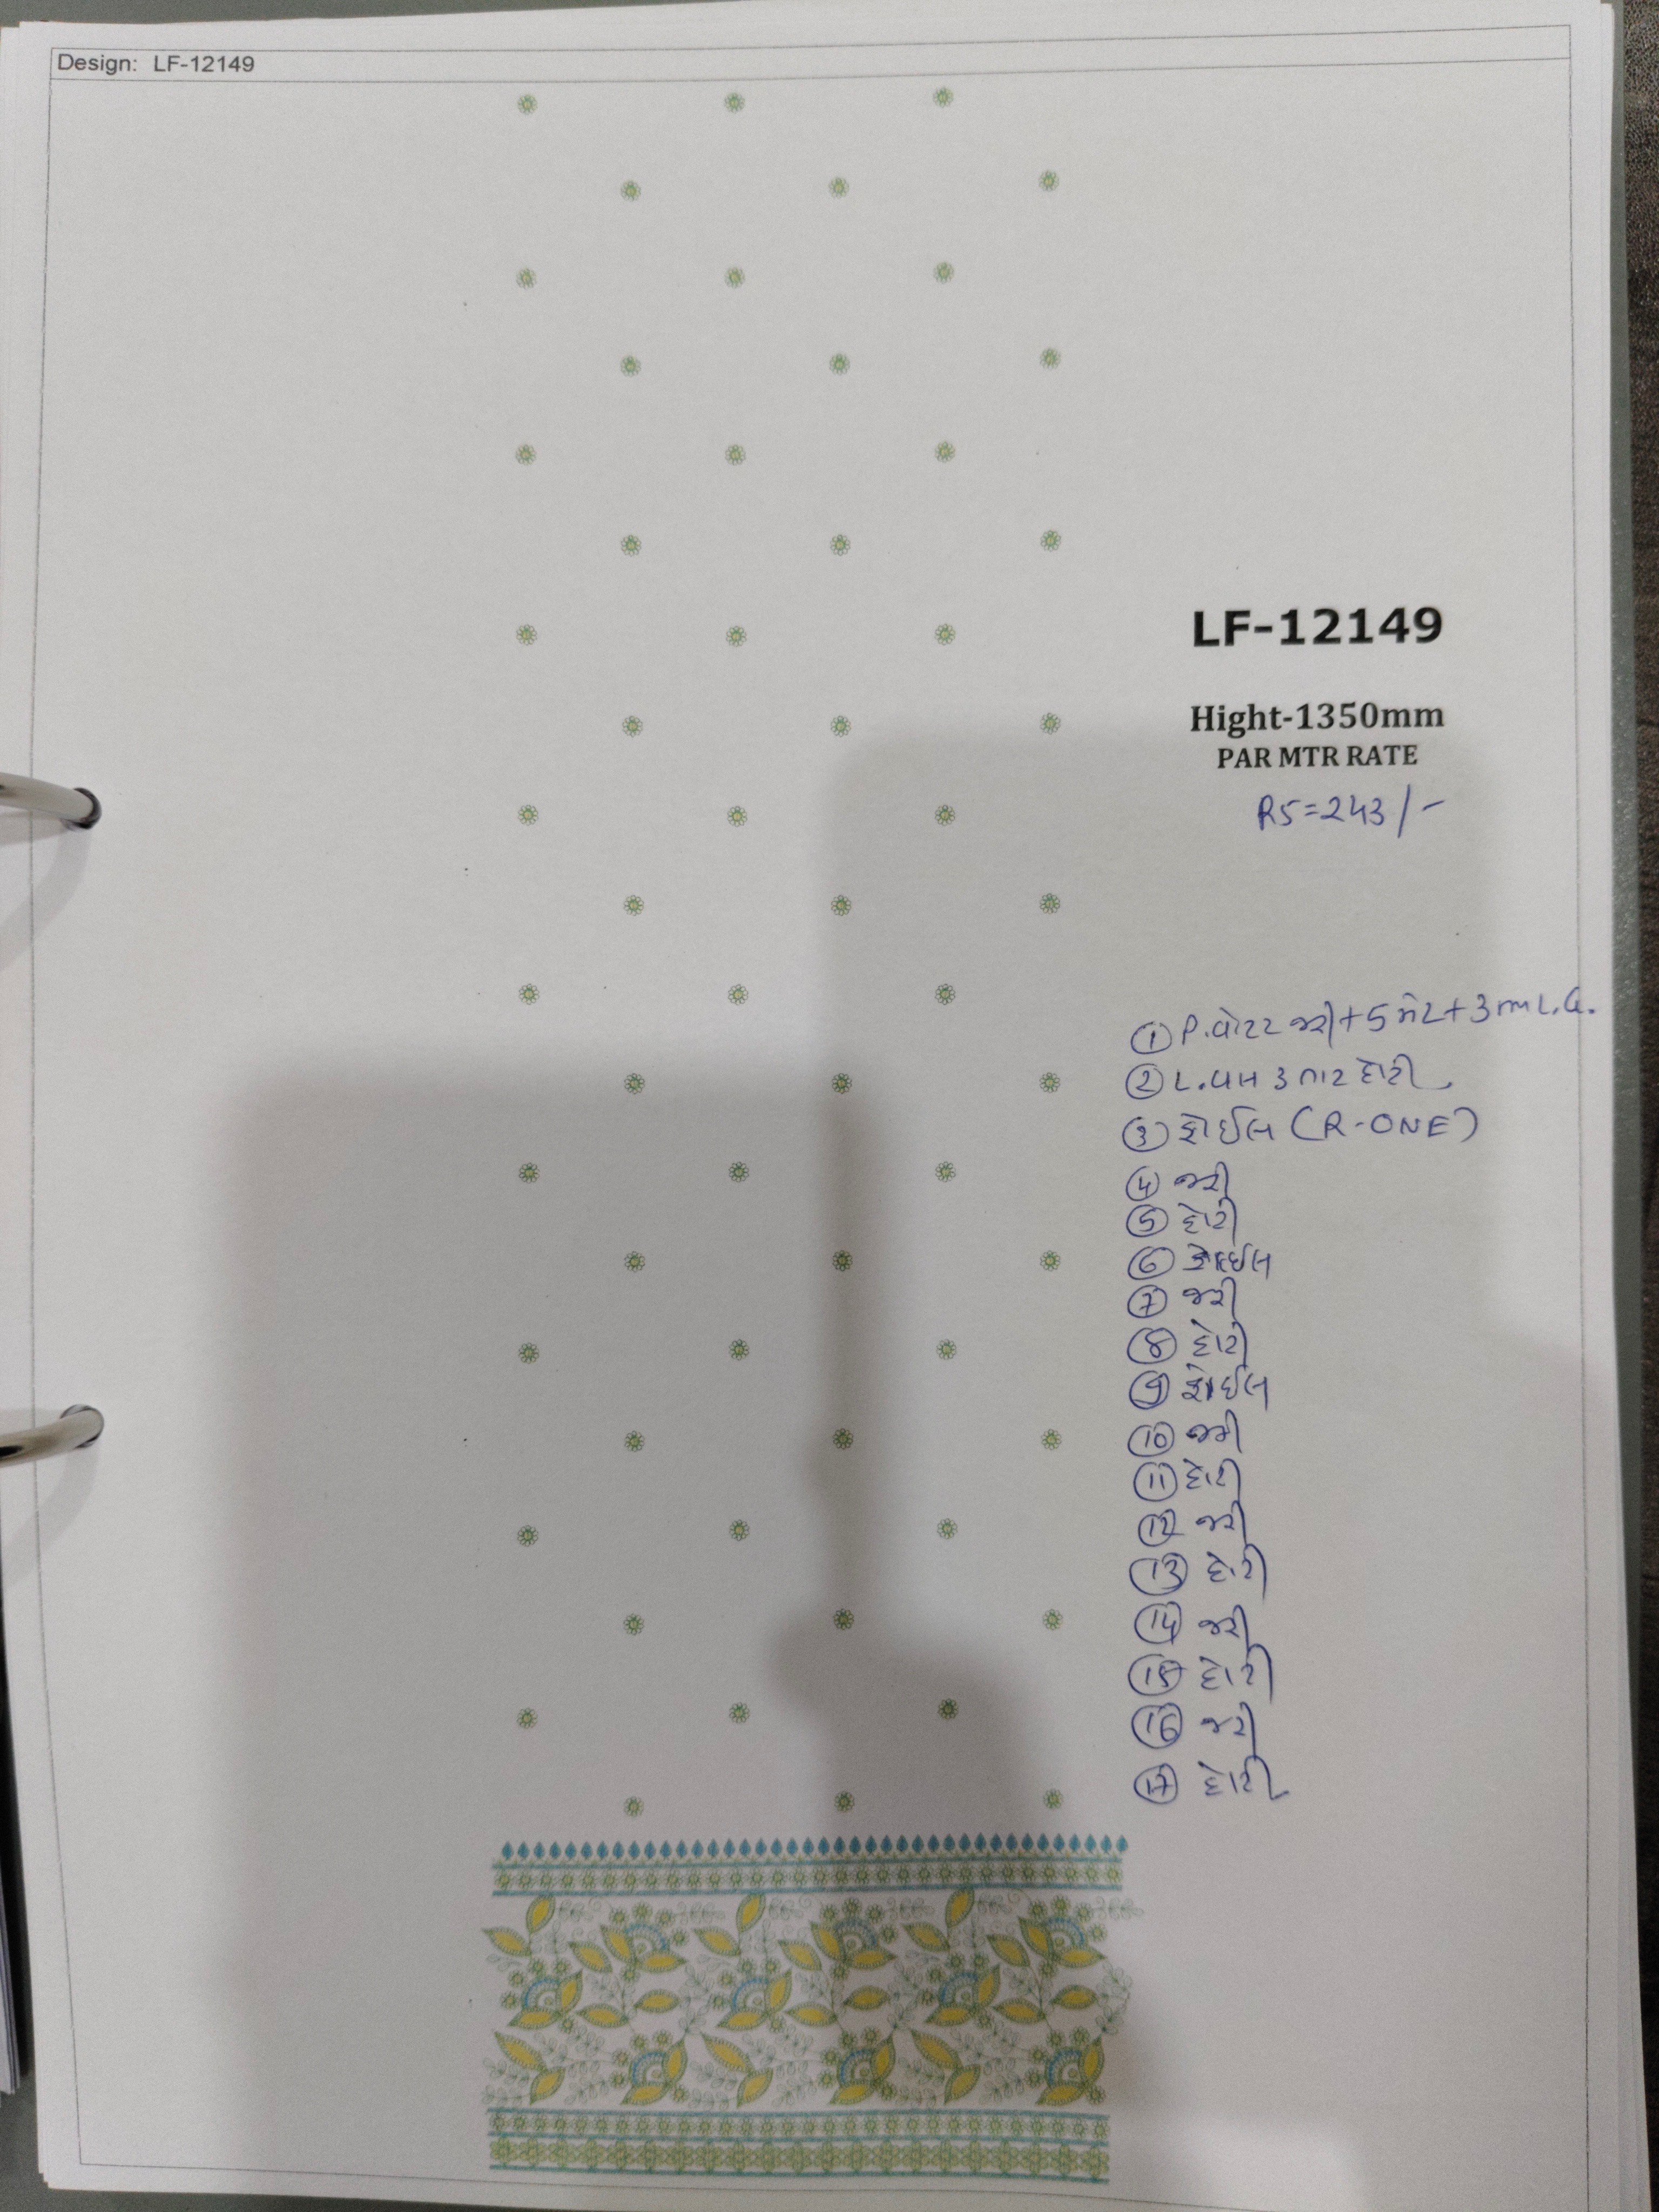 Design: LF-12149
LF-12149
Hight-1350mm
PAR MTR RATE
RS=243/-
① P. વોટર જરી+5 મેટ+3mm L.G.
② L. 3 તાર દોરી
③ ફોઈલ (R-ONE)
④ જરી
⑤ દોરી
⑥ ફોઈલ
⑦ જરી
⑧ દોરી
⑨ ફોઈલ
⑩ જરી
⑪ દોરી
⑫ જરી
⑬ દોરી
⑭ જરી
⑮ દોરી
⑯ જરી
⑰ દોરી